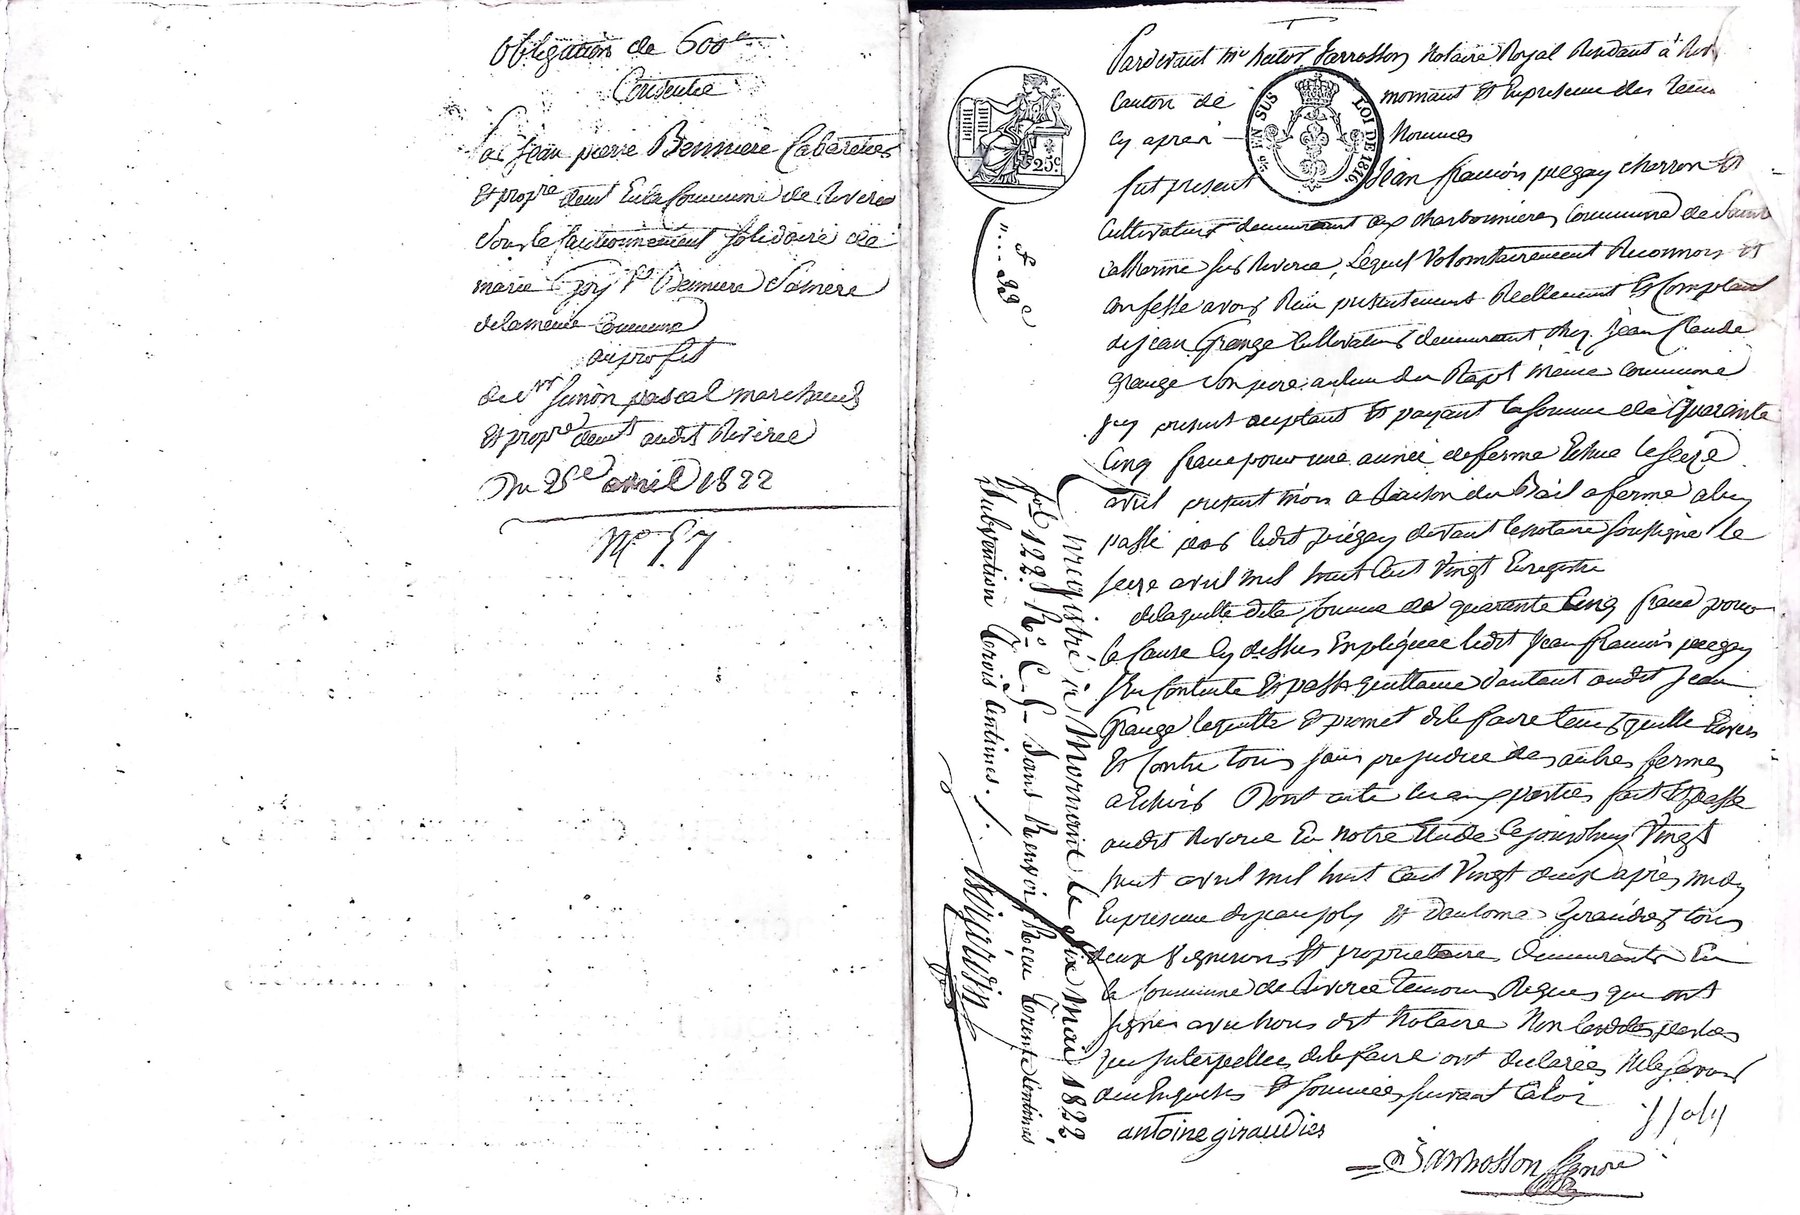 Obligation de 600
Consentie
Par Jean pierre Bennière Cabaretier
Et propre demt En la Commune de Riverie
Sous le Cautionnement Solidaire de
marie Ve Bennière Sa mère
de la meme Commune
au profit
de Mr Simon pascal marchand
Et propre demt audit Riverie
Du 28e avril 1822
No 57
Pardevant Me Notaire Royal Résidant à
Canton de mornant Et En presence des temoins
Cy après Nommés
fut present Jean françois pregay charron Et
Cultivateur demeurant aux charbonnieres Commune de Sainte
catherine sur Riverie, Lequel Volontairement Reconnois Et
confesse avoir Reçu presentement Réellement Et Comptant
de jean Grange Cultivateur demeurant chez Jean Claude
Grange Son pere au lieu du même commune
Icy present acceptant Et payant la Somme de Quarante
Cinq franc pour une année de ferme Echue le Seize
avril present mois a Raison du Bail a ferme a luy
passé par ledit pregay devant le notaire soussigné le
seize avril mil huit Cent Vingt Enregistré
de laquelle dite Somme de quarante Cinq franc pour
la Cause Cy dessus Expliquée ledit Jean françois pregay
Se Contente Et passe quittance d'autant audit Jean
Grange lequitte Et promet de le faire tenir quitte Envers
Et Contre tous sans prejudice des autres fermes
a Echoir Dont acte aux parties fait Et passé
audit Riverie En notre Etude Cejourdhuy Vingt
huit avril mil huit Cent Vingt deux après midy
En presence de jean joly Et d'antoine Giraudier tous
deux Vignerons Et proprietaires demeurants En
la Commune de Riverie temoins Requis qui ont
signés avec nous dit Notaire Non lesdites parties
qui Interpellées de le faire ont declarées ne le Savoir
de ce Enquises Et Sommées suivant la loi
antoine giraudier J Joly
EN SUS LOI DE 1816
25c
Enregistré à Mornant le Six Mai 1822
fol. 122 Ro C. 5 - Sans Renvoi Reçu trente Centimes
Subvention trois Centimes.